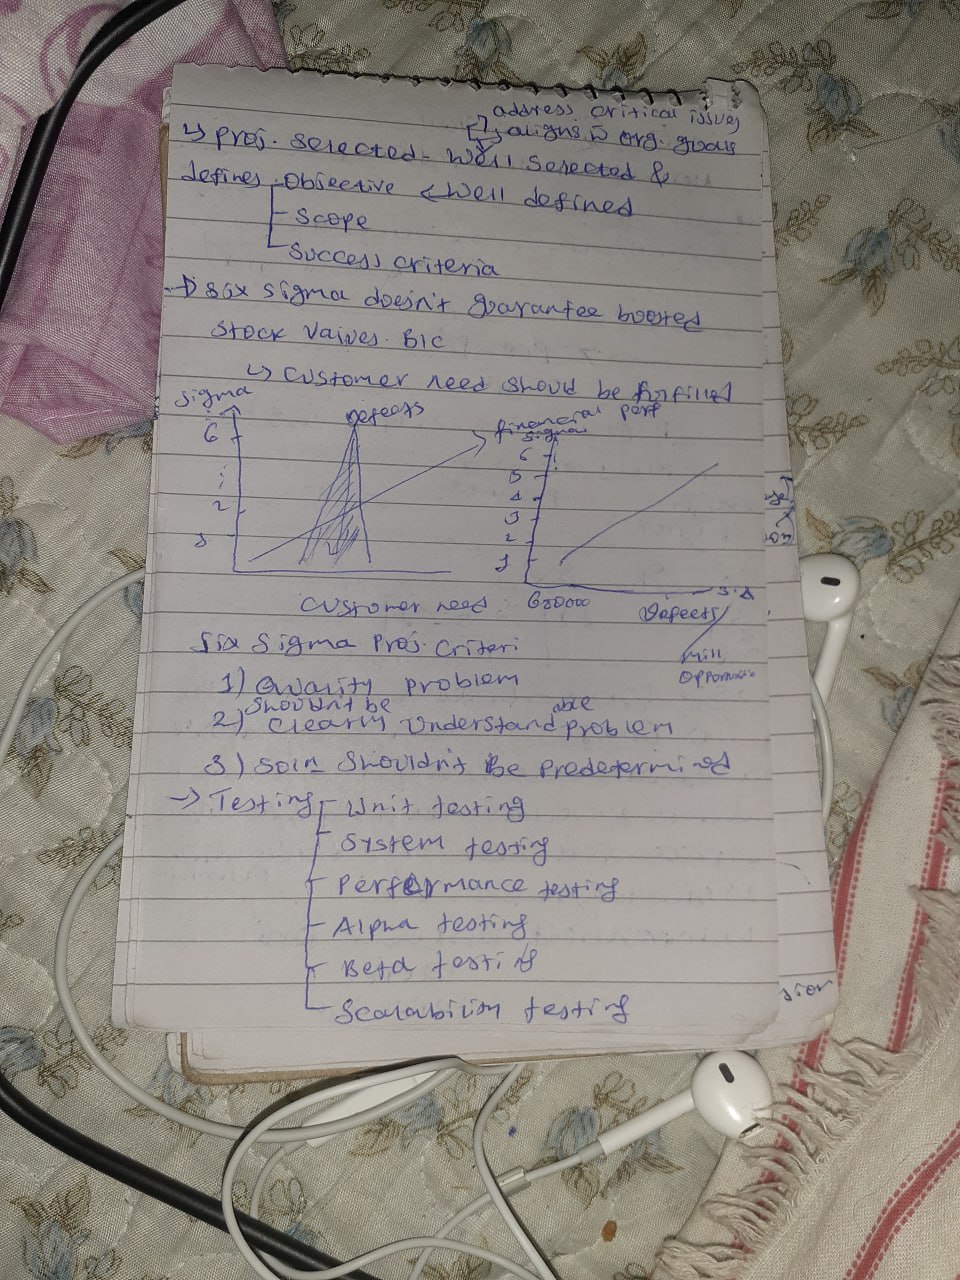 address critical issues
aligns c̄ org. goals
↳ proj. selected - Well selected &
defines Objective < Well defined
- Scope
- Success criteria
→ six sigma doesn't guarantee boosted
stock values. B/c
↳ customer need should be fulfilled
sigma
Defects
financial perf
6
2
customer need
sigma
6
5
4
3
2
1
3.4
Defects/
Mill
Six Sigma Proj. Criteri
1) Quality problem
2) Clearly shouldn't be Understandable problem
3) Soln shouldn't Be Predetermined
→ Testing - Unit testing
- System testing
- Performance testing
- Alpha testing
- Beta testing
- Scalability testing
sion